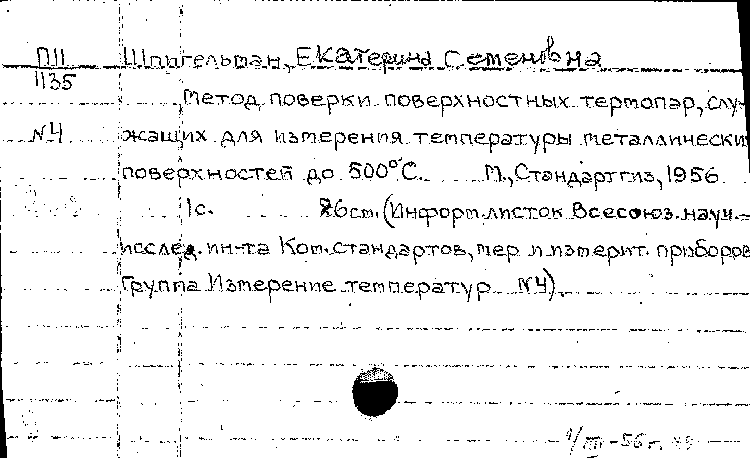 П11 Шпигельман, Екатерина Семеновна
1135
Метод поверки поверхностных термопар, слу-
№4 жащих для измерения температуры металлически
поверхностей до 500°С. М., Стандартгиз, 1956.
1с. 26см. (Информ. листок Всесоюз. науч.-
исслед. ин-та Ком. стандартов, мер и измерит. приборов
Группа Измерение температур №4).
-56г.